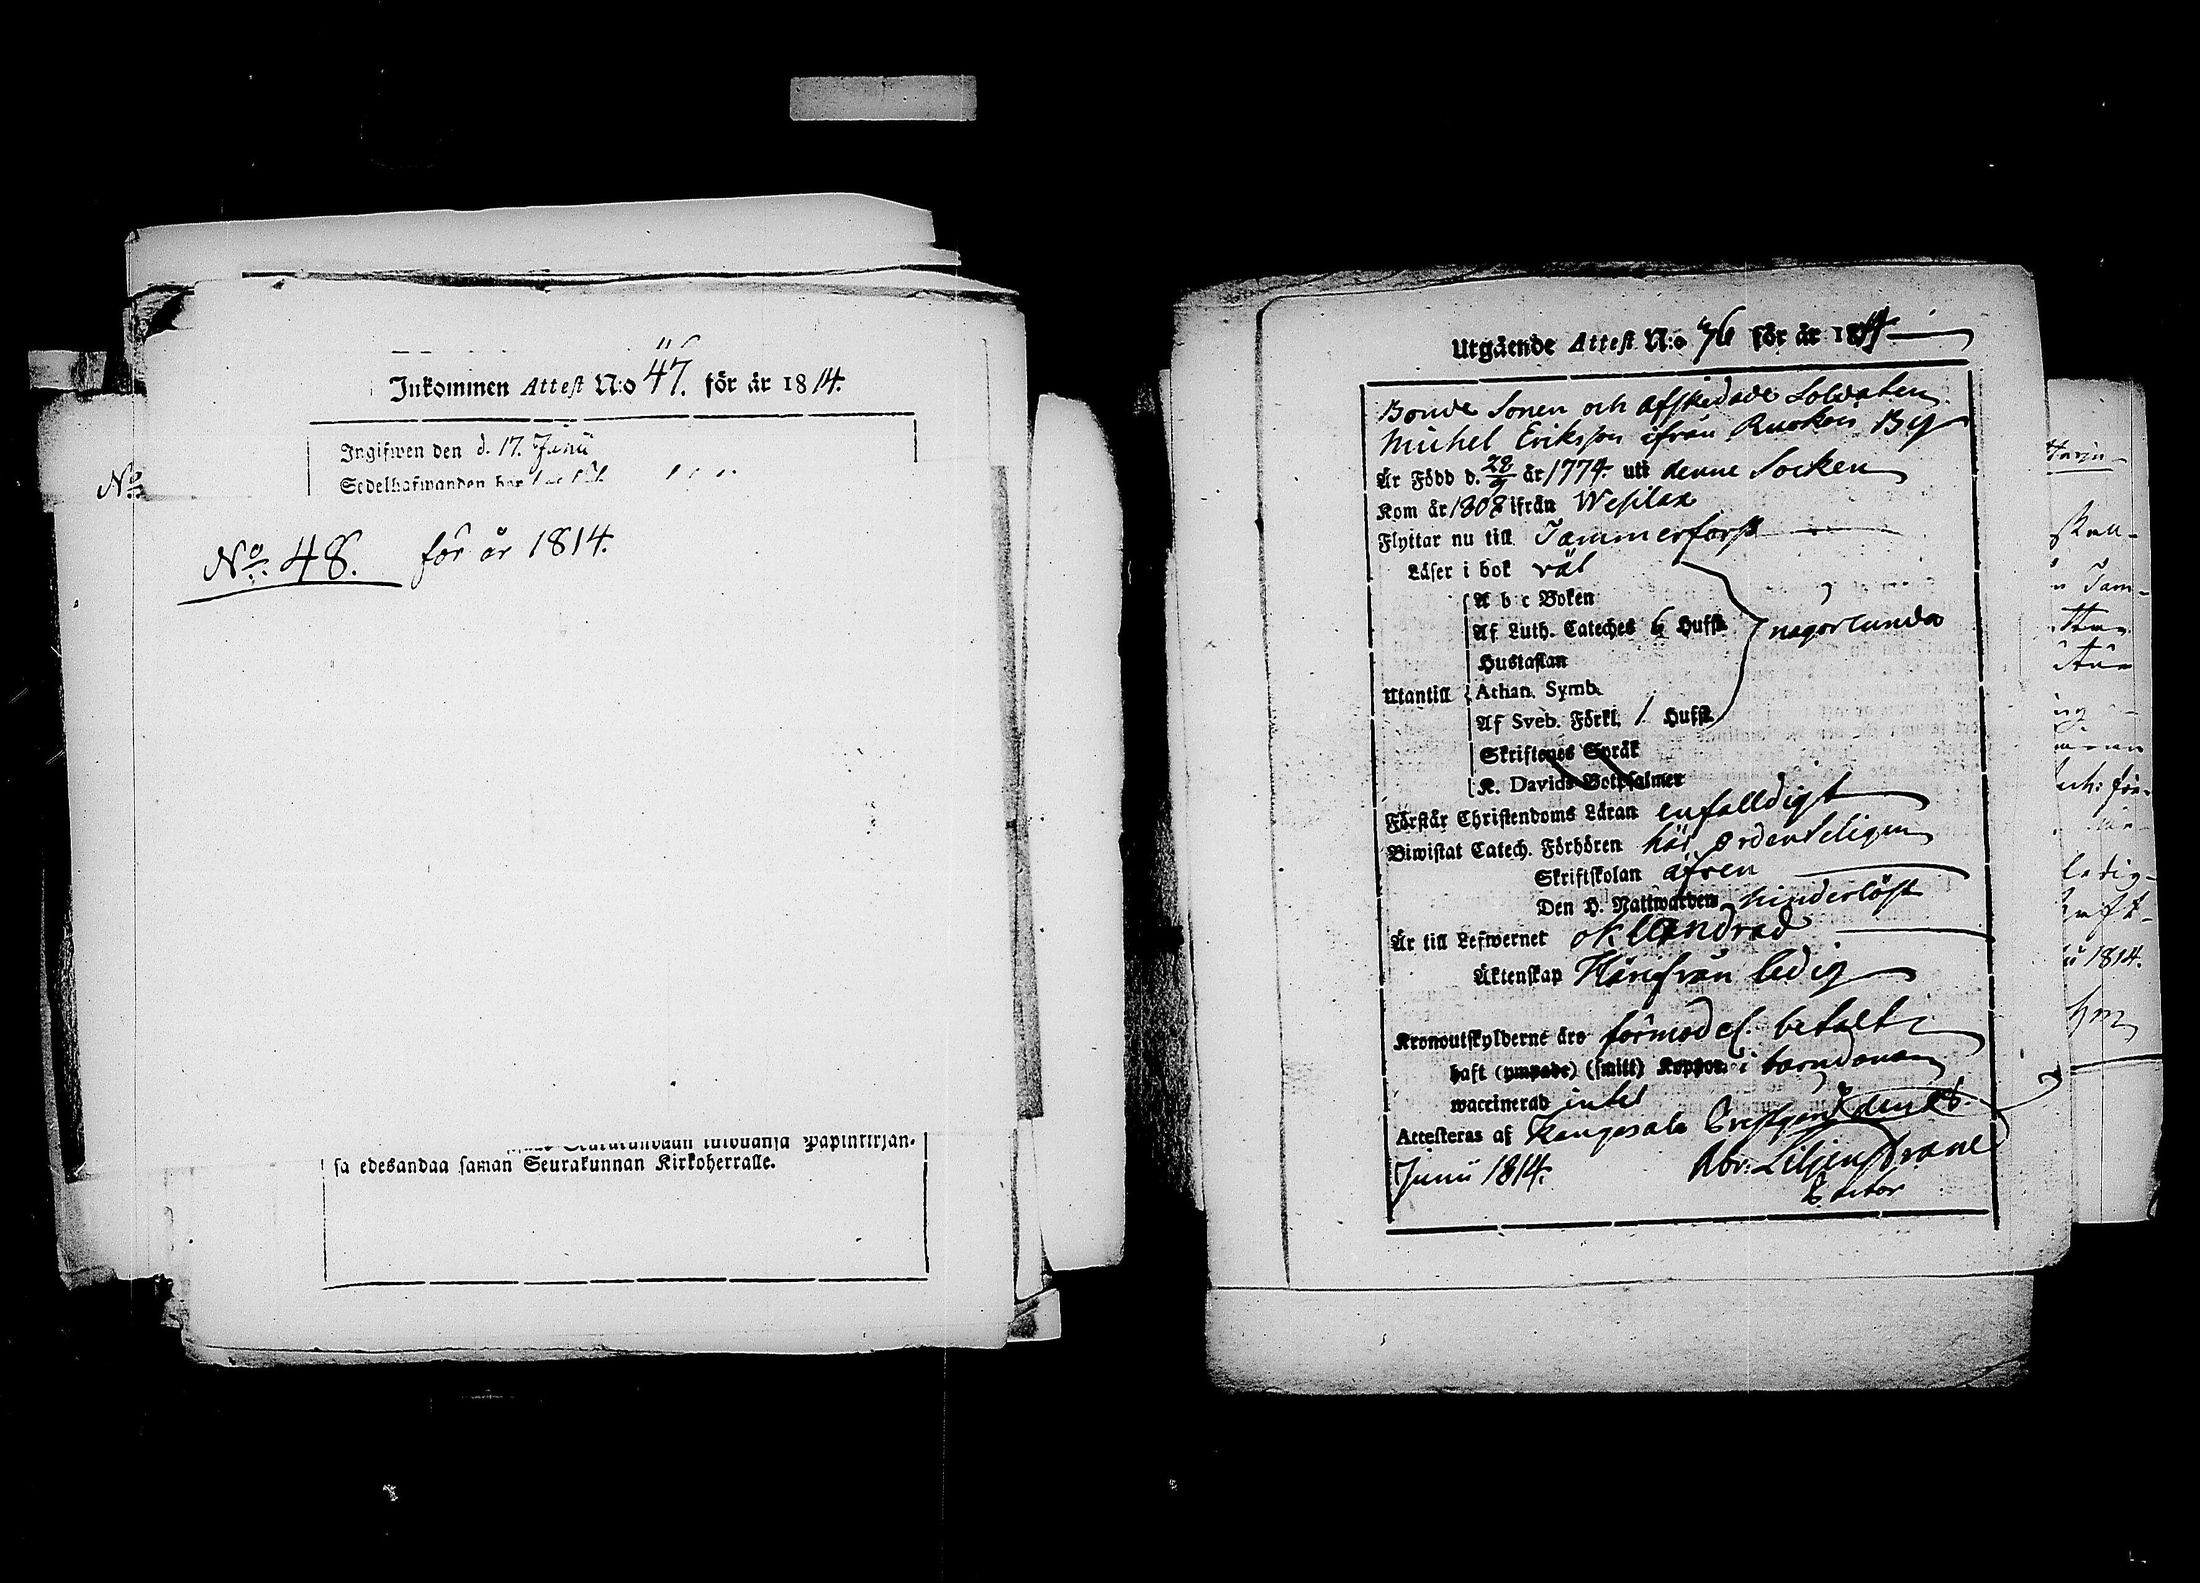 Inkommen Attest N:o 47. för år 1814.
Ingifwen den d. 17. Junii
Sedelhafwanden har
No
No 48. för år 1814.
Seurakundaan tulduansa Papinkirjan-
sa edesandaa saman Seurakunnan Kirkoherralle.
Utgående Attest N:o 76 för år 1814
Bonde Sonen och afskedade Soldaten
Michel Eriksson ifrån Ruokois By
Är Född d. 28/9 år 1774. uti denne Socken
Kom år 1808 ifrån Wesilax
Flyttar nu till Tammerfors
Läser i bok väl
A b c Boken
Af Luth. Cateches 6 Hufst. någorlunda
Hustaflan
Utantill Athan. Symb.
Af Sveb. Förkl. 1 Hufst.
Skriftenes Språk
K. Davids Botpsalmer
Förstår Christendoms Läran enfalldigt
Biwistat Catech. Förhören här ordenteligen
Skriftskolan äfven
Den H. Nattwarden hinderlöst
Är till Lefwernet oklandrad
Äktenskap Härifrån ledig
Kronoutskylderne äro förmodel. betalt
haft (ympade) (smitt) Koppor i barndomen
waccinerad intet
Attesteras af Kangasala Prestgård den
Junii 1814. Abr: Liljenstrand
Skall-
Tam-
ledig
1814.